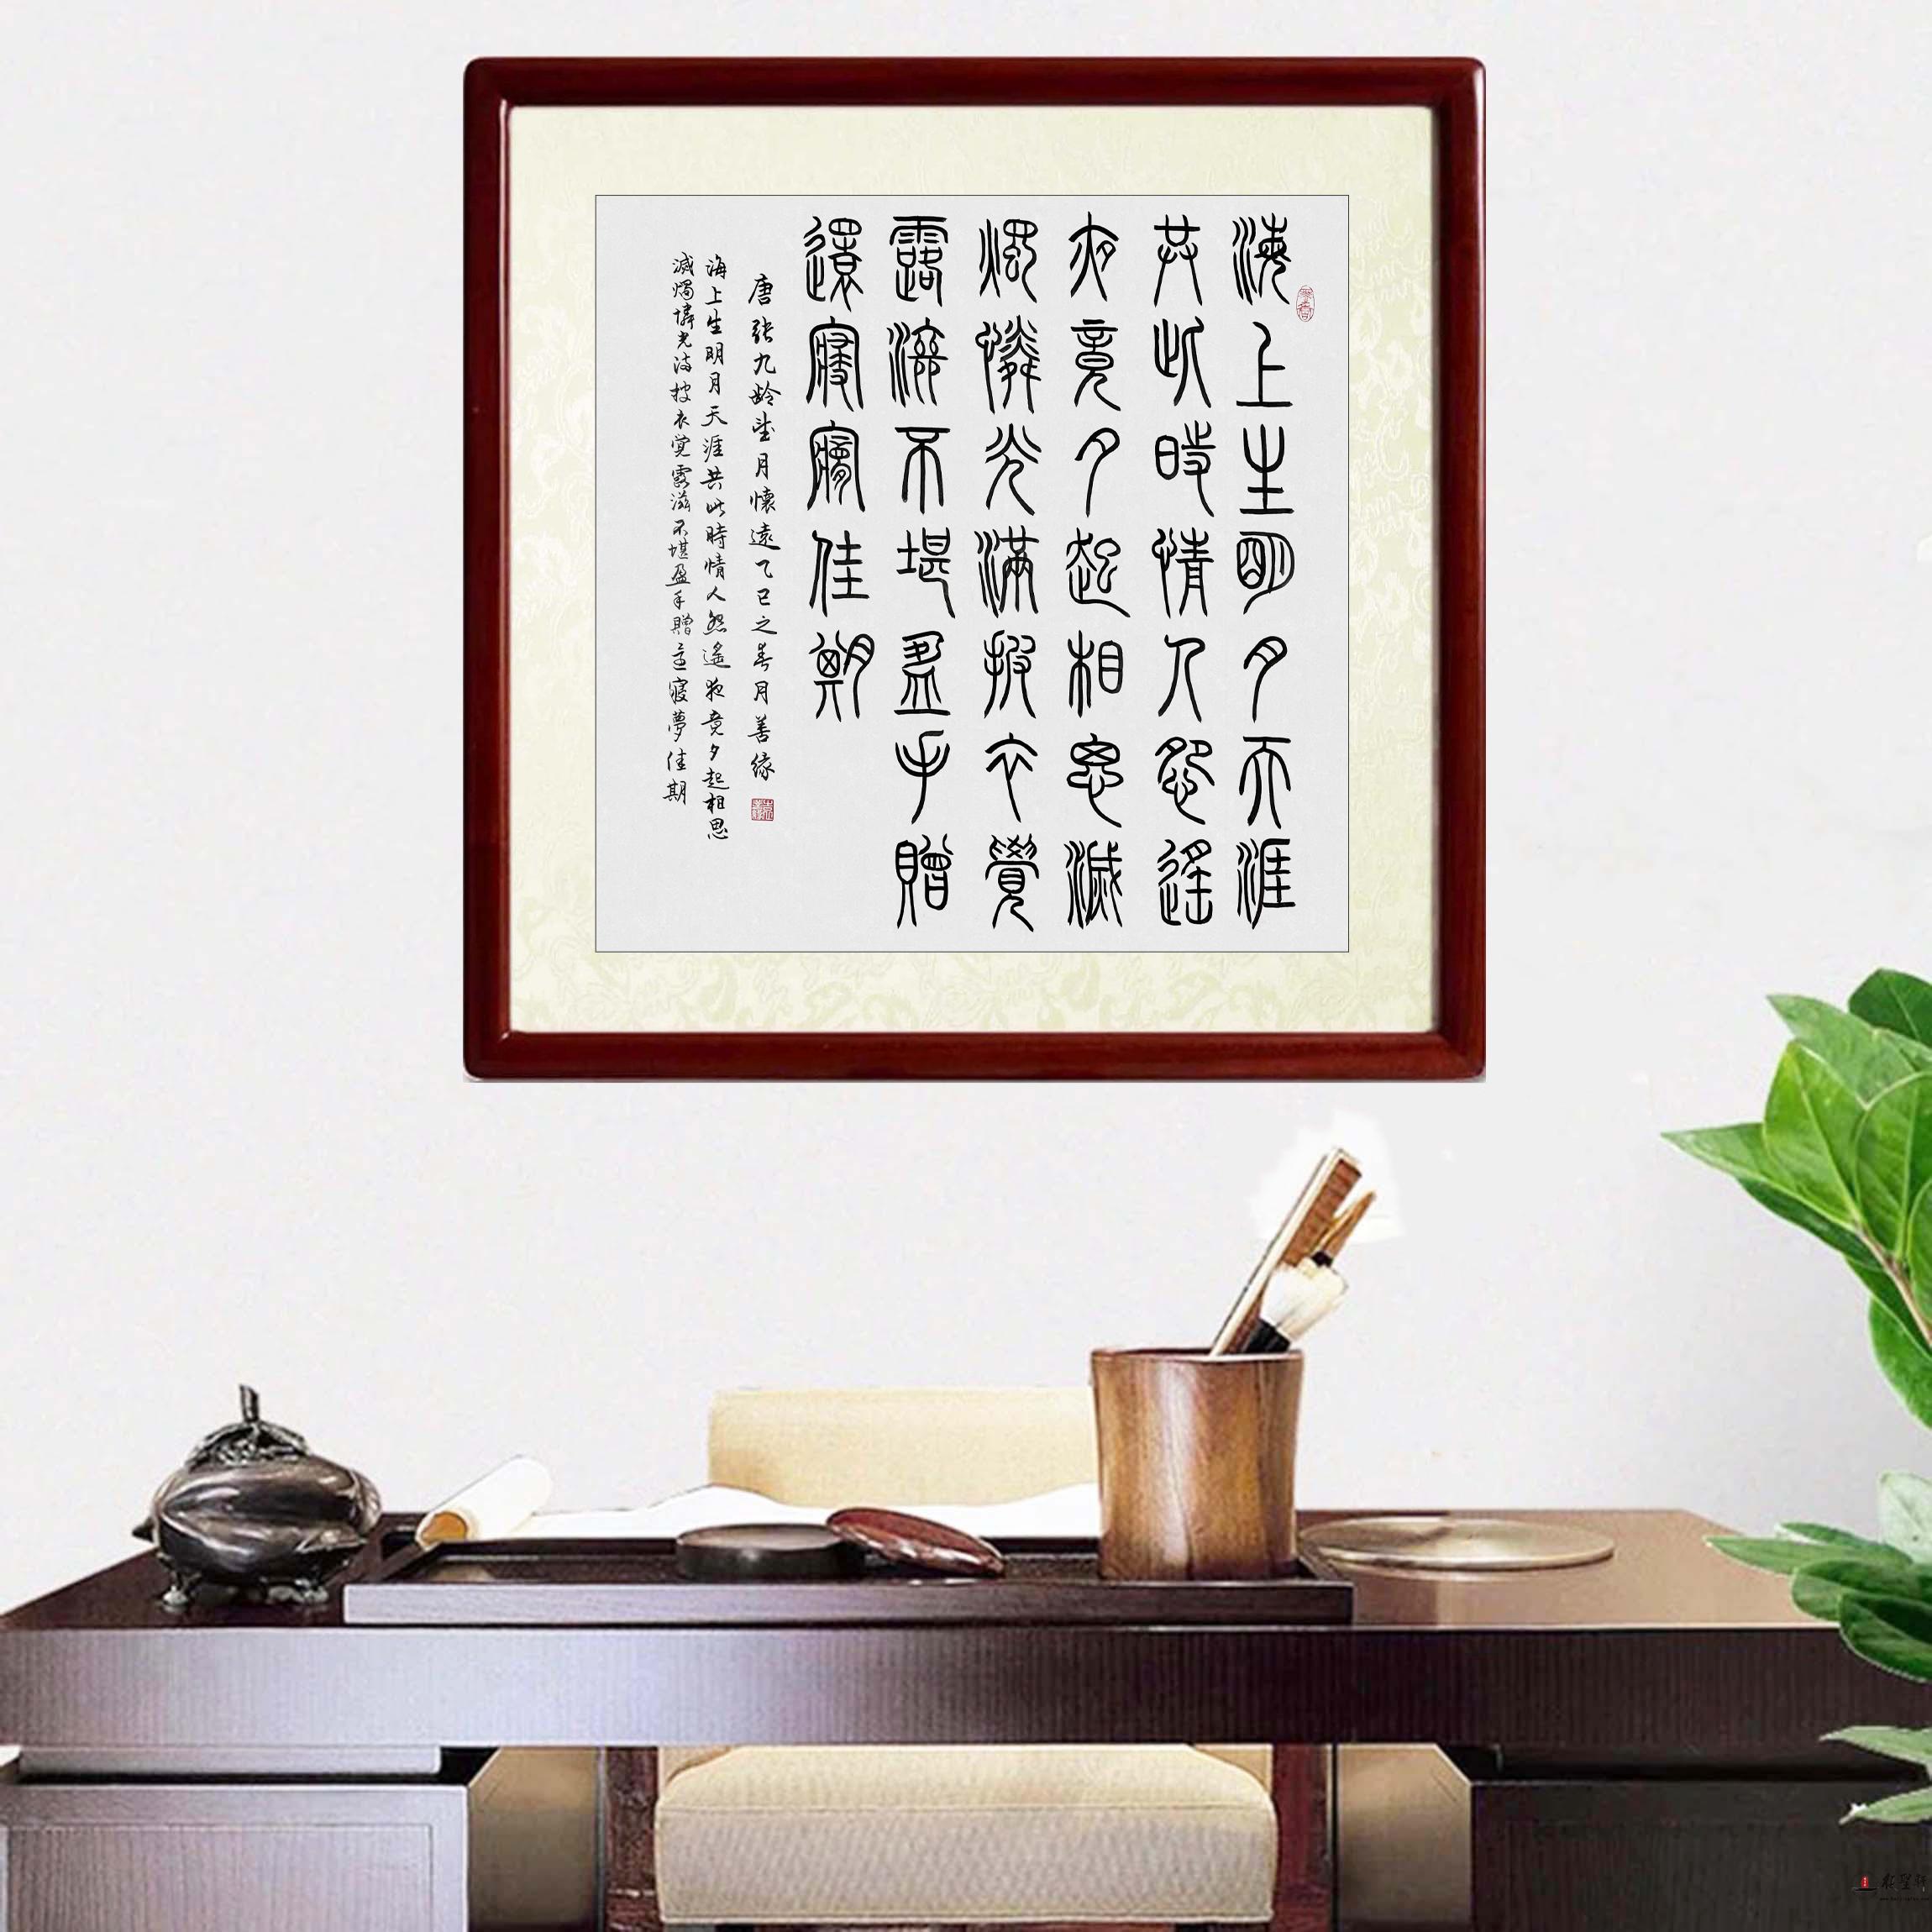 海上生明月天涯
共此時情人怨遙
夜竟夕起相思滅
燭憐光滿披衣覺
露滋不堪盈手贈
還寢夢佳期
唐張九齡望月懷遠乙巳之春月善緣
海上生明月天涯共此時情人怨遙夜竟夕起相思
滅燭憐光滿披衣覺露滋不堪盈手贈還寢夢佳期